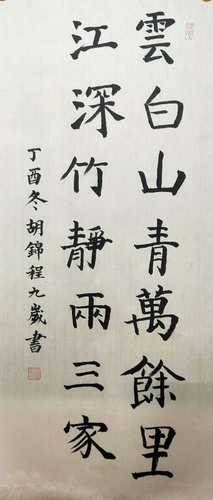 雲白山青萬餘里
江深竹靜兩三家
丁酉冬胡錦程九歲書